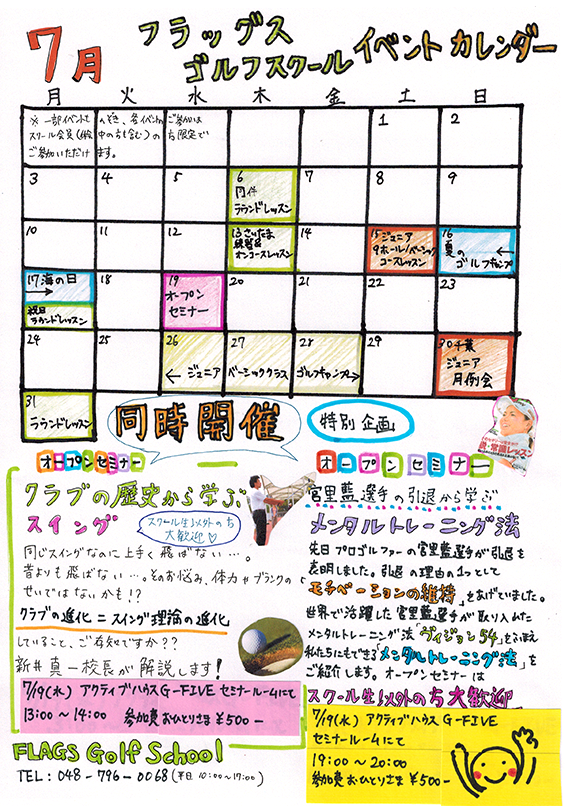 7月
フラッグス
ゴルフスクール イベントカレンダー
月 火 水 木 金 土 日
※ 一部イベントをのぞき、各イベントのご参加は
スクール会員(休会中の方も含む)の方限定で
ご参加いただけます。
1 2
3 4 5 6 7 8 9
同伴
ラウンドレッスン
10 11 12 13 さいたま
練習&
オンコースレッスン
14
15 ジュニア
9ホール/ベーシック
コースレッスン
16 夏の
ゴルフキャンプ
17 海の日
祝日
ラウンドレッスン
18
19
オープン
セミナー
20 21 22 23
24 25 26 27 28 29
ジュニア ベーシッククラス ゴルフキャンプ
30 千葉
ジュニア
月例会
31
ラウンドレッスン
同時開催
特別企画
オープンセミナー
クラブの歴史から学ぶ
スイング
スクール生以外の方
大歓迎♡
同じスイングなのに上手く飛ばない…。
昔よりも飛ばない…。そのお悩み、体力やブランクの
せいではないかも!?
クラブの進化=スイング理論の進化
していること、ご存知ですか??
新井真一校長が解説します!
7/19(水) アクティブハウスG-FIVE セミナールームにて
13:00~14:00 参加費おひとりさま¥500-
FLAGS Golf School
TEL: 048-796-0068(平日10:00~19:00)
オープンセミナー
宮里藍選手の引退から学ぶ
メンタルトレーニング法
先日プロゴルファーの宮里藍選手が引退を
表明しました。引退の理由の1つとして
「モチベーションの維持」をあげていました。
世界で活躍した宮里藍選手が取り入れた
メンタルトレーニング法「ヴィジョン54」をふまえ
私たちにもできる「メンタルトレーニング法」を
ご紹介します。オープンセミナーは
スクール生以外の方大歓迎
7/19(水) アクティブハウスG-FIVE
セミナールームにて
19:00~20:00
参加費おひとりさま¥500-